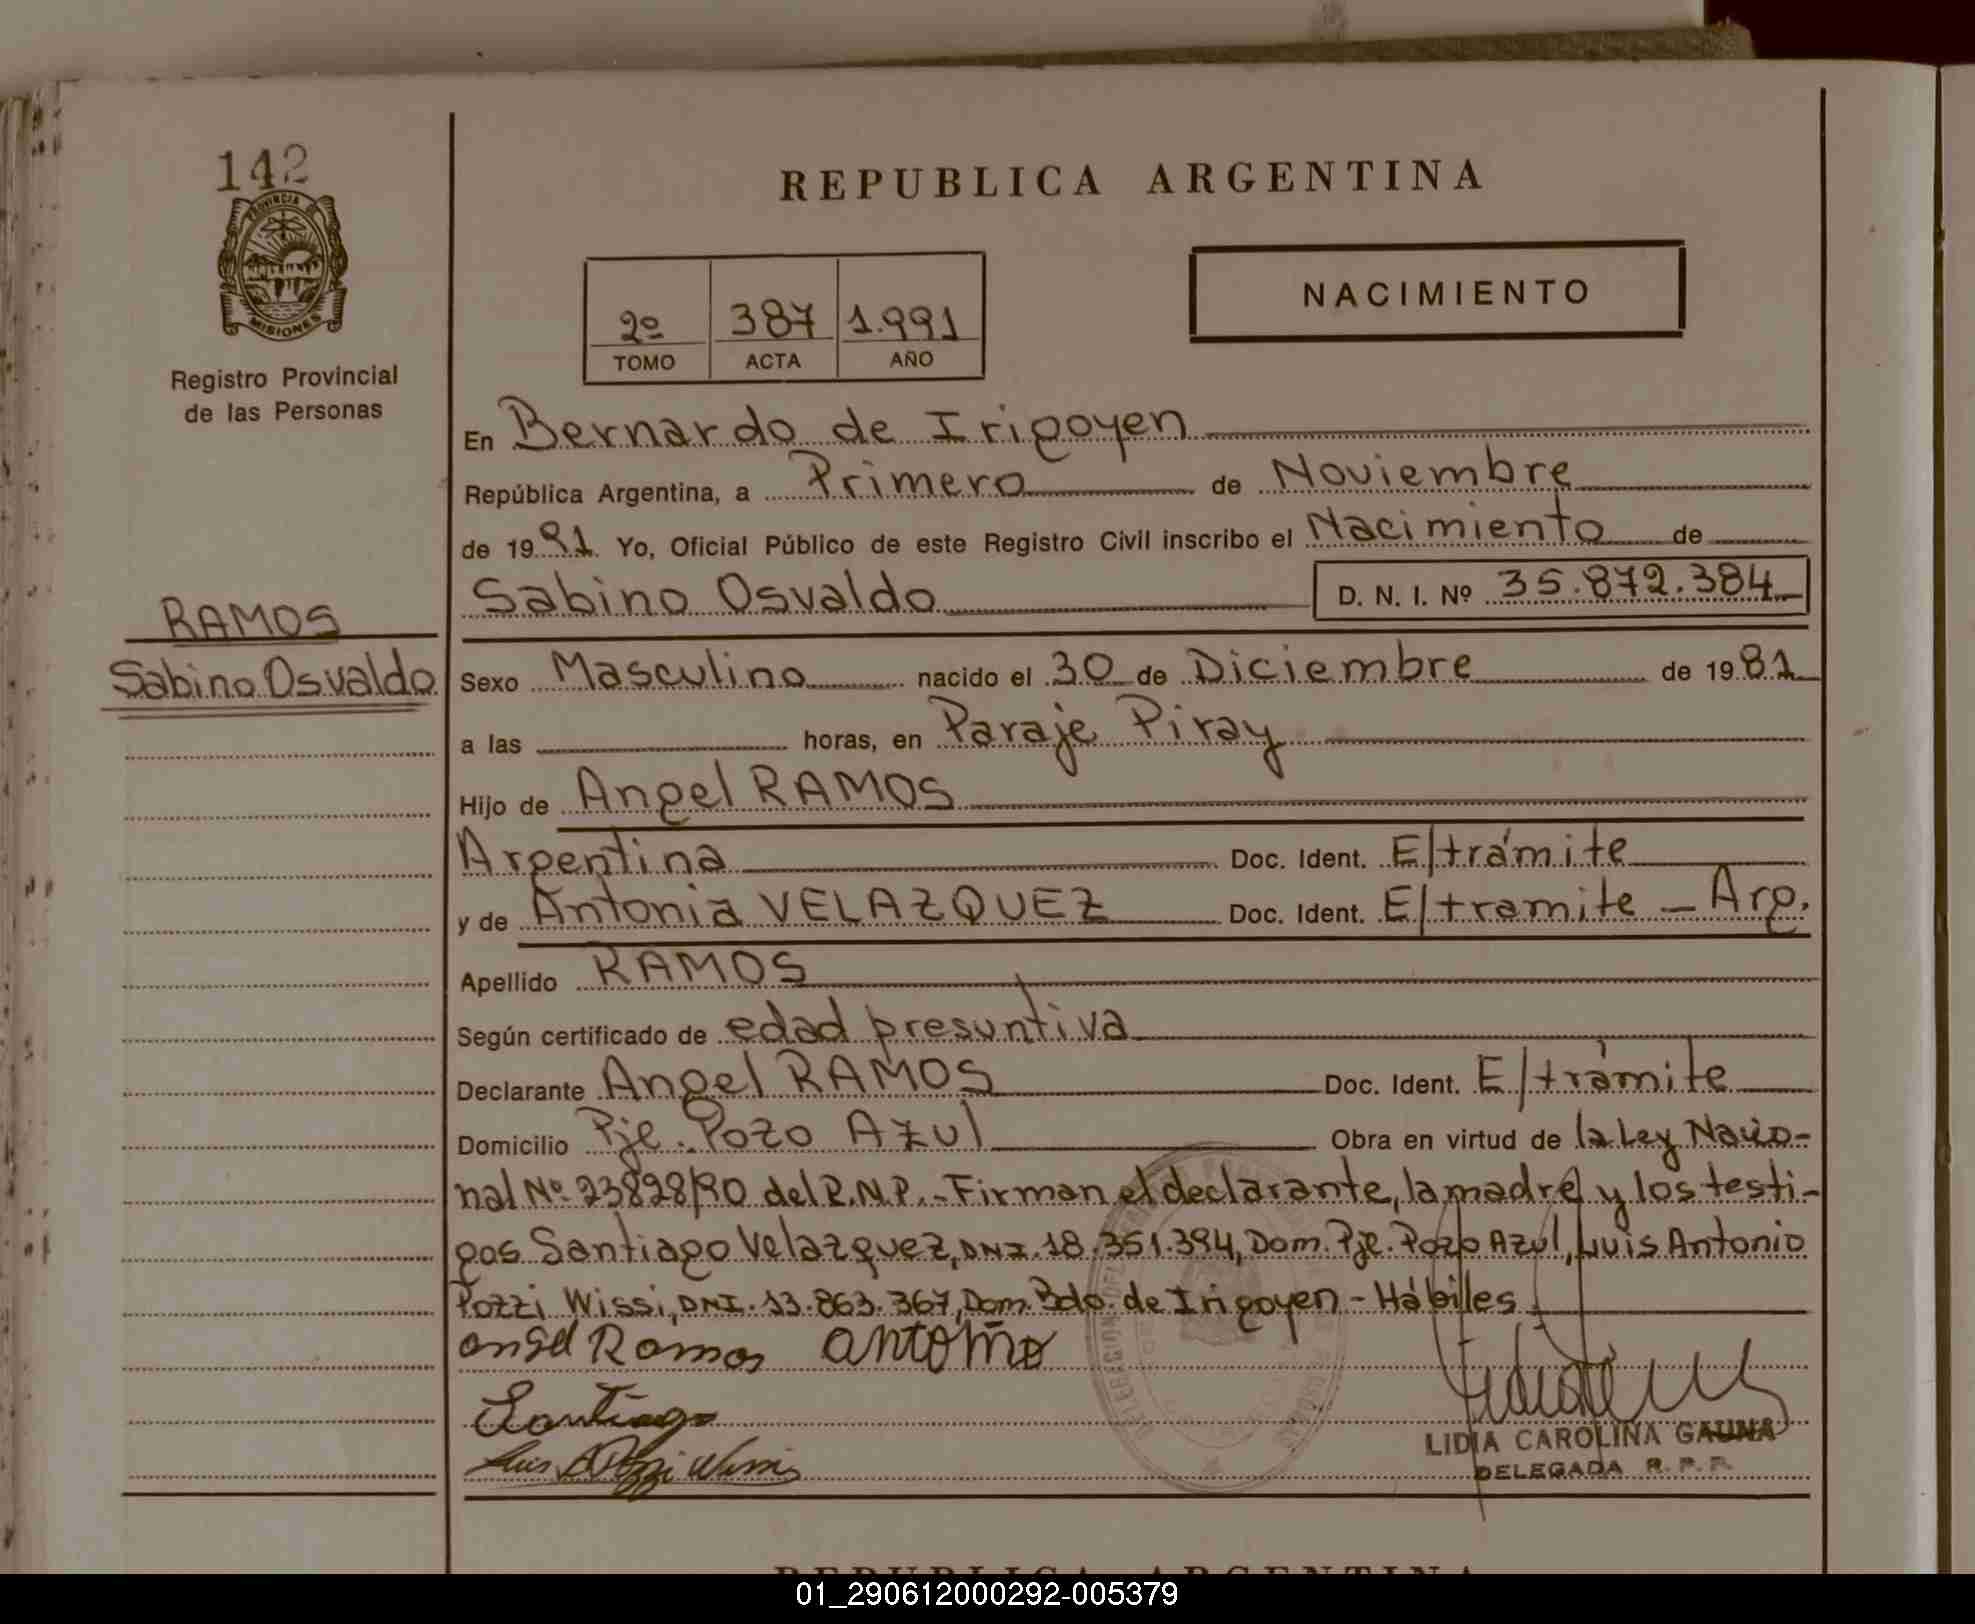 142
PROVINCIA DE
MISIONES
Registro Provincial
de las Personas
RAMOS
Sabino Osvaldo
REPUBLICA ARGENTINA
2º 387 1.991
TOMO ACTA AÑO
NACIMIENTO
En Bernardo de Irigoyen
República Argentina, a Primero de Noviembre
de 1991 Yo, Oficial Público de este Registro Civil inscribo el Nacimiento de
Sabino Osvaldo D. N. I. Nº 35.872.384
Sexo Masculino nacido el 30 de Diciembre de 1981
a las horas, en Paraje Piray
Hijo de Angel RAMOS
Argentina Doc. Ident. E/trámite
y de Antonia VELAZQUEZ Doc. Ident. E/tramite - Arg.
Apellido RAMOS
Según certificado de edad presuntiva
Declarante Angel RAMOS Doc. Ident. E/trámite
Domicilio Pje. Pozo Azul Obra en virtud de la Ley Nacio-
nal Nº 23828/90 del R.N.P.- Firman el declarante, la madre y los testi-
gos Santiago Velazquez, DNI. 18.351.394, Dom. Pje. Pozo Azul, Luis Antonio
Pozzi Wissi, DNI. 13.863.367, Dom. Bdo. de Irigoyen - Hábiles
angel Ramos antonio
Santiago
Luis A Pozzi Wissi
LIDIA CAROLINA GAUNA
DELEGADA R. P. P.
REPUBLICA ARGENTINA
01_290612000292-005379